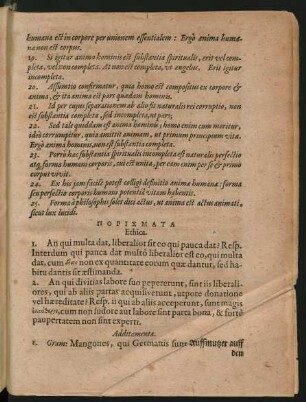 humana est in corpore per unionem essentialem: Ergò anima huma-
na non est corpus.
19. Si igitur anima hominis est substantia spiritualis, erit vel com-
pleta, vel incompleta. At non est completa, ut angelus. Erit igitur
incompleta.
20. Assumtio confirmatur, quia homo est compositus ex corpore &
anima, & ita anima est pars quædam hominis.
21. Id per cujus separationem ab alio fit naturalis rei corruptio, non
est substantia completa, sed incompleta, ut pars;
22. Sed tale quiddam est anima hominis; homo enim cum moritur,
ideò corrumpitur, quia amittit animam, ut primum principium vitæ.
Ergò anima hominis, non est substantia completa.
23. Porrò hæc substantia spiritualis incompleta est naturalis perfectio
atq, forma humani corporis, cui est unita, per eam enim per se & primò
corpus vivit.
24. Ex his jam facilè potest colligi definitio animæ humanæ: forma
seu perfectio corporis humani potentiâ vitam habentis.
25. Forma à philosophis solet dici actus, ut anima est actus animati,
sicut lux lucidi.
ΠΟΡΙΣΜΑΤΑ
Ethica.
1. An qui multa dat, liberalior sit eo qui pauca dat? Resp.
Interdum qui pauca dat multò liberalior est eo, qui multa
dat, cum non ex quantitate eorum quæ dantur, sed ha-
bitu dantis sit æstimanda.
2. An qui divitias labore suo pepererunt, sint iis liberalio-
res, qui ab aliis partas acquisiverunt, utpote donatione
vel hæreditate? Resp. ii qui ab aliis acceperunt, sunt magis
cum non sudore aut labore sint parta bona, & fortè
paupertatem non sint experti.
Additamenta.
1. Gram: Mangones, qui Germanis sunt Auffmutzer auff
dem